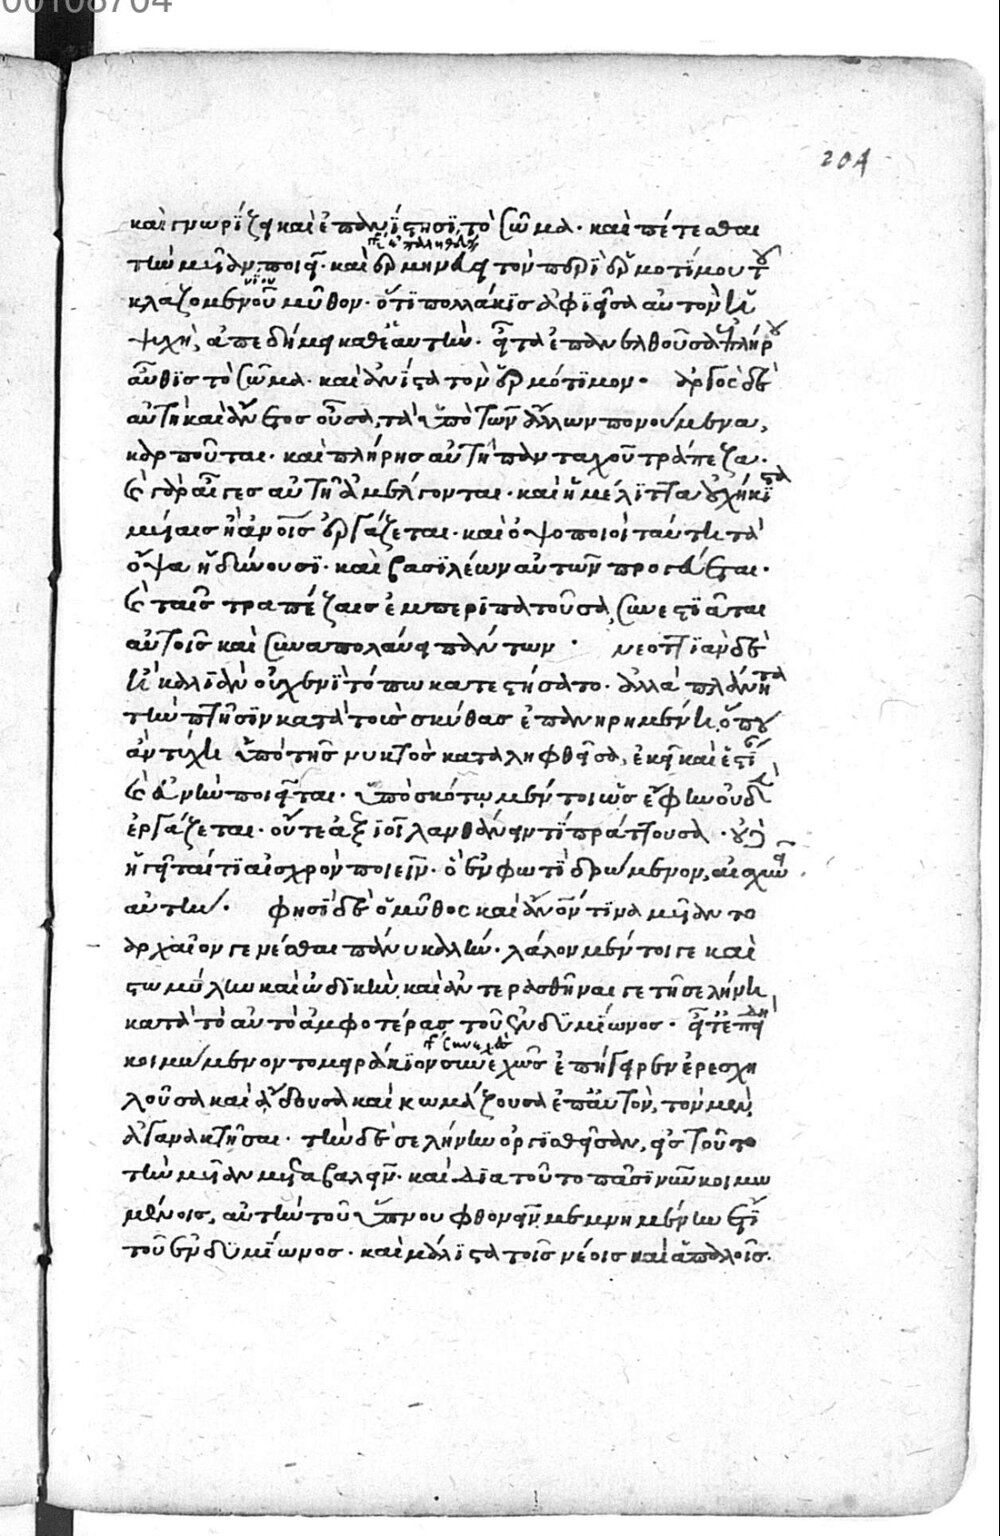 204
καὶ γνωρίζει καὶ ἐπανίστησι, τὸ σῶμα. καὶ πέτεσθαι
τὴν μυῖαν, ποιεῖ. καὶ ἑρμηνεύει τὸν περὶ ἑρμοτίμου τοῦ
κλαζομενίου μῦθον. ὅτι πολλάκις ἀφιεῖσα αὐτὸν ἡ
ψυχή, ἀπεδήμει καθ' ἑαυτήν. εἶτα ἐπανελθοῦσα ἐπλήρου
αὖθις τὸ σῶμα. καὶ ἀνίστα τὸν ἑρμότιμον. ἀργὸς δὲ
αὐτὴ καὶ ἄνετος οὖσα, τὰ ὑπὸ τῶν ἄλλων πονούμενα,
καρποῦται. καὶ πλήρης αὐτῇ πανταχοῦ τράπεζα.
καὶ γὰρ αἱ αἶγες αὐτῇ ἀμέλγονται. καὶ ἡ μέλιττα οὐχ ἥκιστα
μυίαις ἢ ἀνθρώποις ἐργάζεται. καὶ ὀψοποιοὶ ταύτῃ τὰ
ὄψα ἡδύνουσι. καὶ βασιλέων αὐτῶν προγεύεται.
καὶ ταῖς τραπέζαις ἐμπεριπατοῦσα, συνεστιᾶται
αὐτοῖς καὶ συναπολαύει πάντων. νεοττιὰν δὲ
ἢ καλιὰν οὐχ ἑνὶ τόπω κατεστήσατο. ἀλλὰ πλάνητα
τὴν πτῆσιν κατὰ τοὺς σκύθας ἐπανηρημένη, ὅπου
ἂν τύχῃ ὑπὸ τῆς νυκτὸς καταληφθεῖσα, ἐκεῖ καὶ ἑστίαν
καὶ εὐνὴν ποιεῖται. ὑπὸ σκότῳ μέντοι ὡς ἔφην οὐδὲν
ἐργάζεται. οὔτε ἀξιοῖ λανθάνειν τι πράττουσα. οὐδὲ
ἡγεῖταί τι αἰσχρὸν ποιεῖν. ὃ ἐν φωτὶ δρώμενον, αἰσχυνεῖ
αὐτήν. φησὶ δὲ ὁ μῦθος καὶ ἄνθρωπόν τινα μυῖαν τὸ
ἀρχαῖον γενέσθαι πάνυ καλήν. λάλον μέντοι γε καὶ
στωμύλην καὶ ὠδικήν, καὶ ἀντερασθῆναί γε τῇ σελήνῃ,
κατὰ τὸ αὐτὸ ἀμφοτέρας τοῦ ἐνδυμίωνος. εἶτ' ἐπειδὴ
κοιμώμενον τὸ μειράκιον συνεχῶς ἐπήγειρεν ἐρεσχη
λοῦσα καὶ ἄδουσα καὶ κωμάζουσα ἐπ' αὐτόν, τὸν μὲν,
ἀγανακτῆσαι. τὴν δὲ σελήνην ὀργισθεῖσαν, εἰς τοῦτο
τὴν μυῖαν μεταβαλεῖν. καὶ διὰ τοῦτο πᾶσι νῦν κοιμω
μένοις, αὐτὴν τοῦ ὕπνου φθονεῖν, μεμνημένην ἔτι
τοῦ ἐνδυμίωνος. καὶ μάλιστα τοῖς νέοις καὶ ἁπαλοῖς.